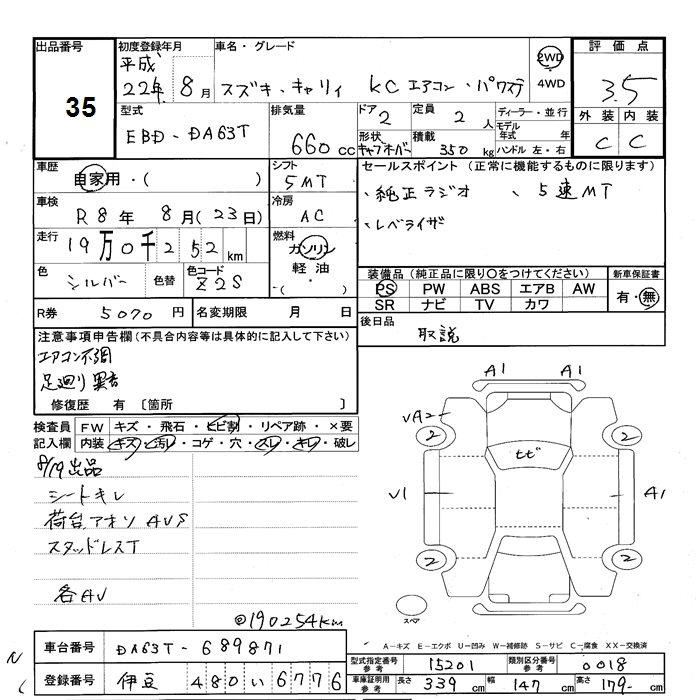 出品番号
35
初度登録年月
平成
22年 8月
車名・グレード
スズキ・キャリィ KC エアコン・パワステ
2WD
4WD
評価点
3.5
外装 内装
C C
型式
EBD-DA63T
排気量
660 cc
ドア 2
定員 2人
ディーラー・並行
モデル年式 年
ハンドル 左・右
形状 キャブオーバ
積載 350 kg
車歴
自家用・( )
シフト
5MT
車検
R8年 8月(23日)
冷房
AC
走行
19万0千252km
燃料
ガソリン
軽油
・( )
色
シルバー
色替
色コード
Z2S
セールスポイント(正常に機能するものに限ります)
・純正ラジオ 、5速MT
・レベライザ
装備品(純正品に限り○をつけてください)
PS PW ABS エアB AW
SR ナビ TV カワ
新車保証書
有・無
R券 5070円
名変期限 月 日
後日品
取説
注意事項申告欄(不具合内容等は具体的に記入して下さい)
エアコン不調
足廻り異音
修復歴 有 [箇所 ]
検査員
記入欄
FW キズ・飛石・ヒビ割・リペア跡・×要
内装 キズ・汚レ・コゲ・穴・スレ・キレ・破レ
8/19出品
シートキレ
荷台アオリ AVS
スタッドレスT
各AV
@190254km
A1 A1
VA2
2 2
ヒビ
V1 A1
2 2
スペア
A-キズ E-エクボ U-凹み W-補修跡 S-サビ C-腐食 XX-交換済
車台番号
DA63T-689871
登録番号
伊豆 480い6776
型式指定番号
参考
15201
類別区分番号
参考
0018
車庫証明用
参考
長さ 339 cm
幅 147 cm
高さ 179 cm